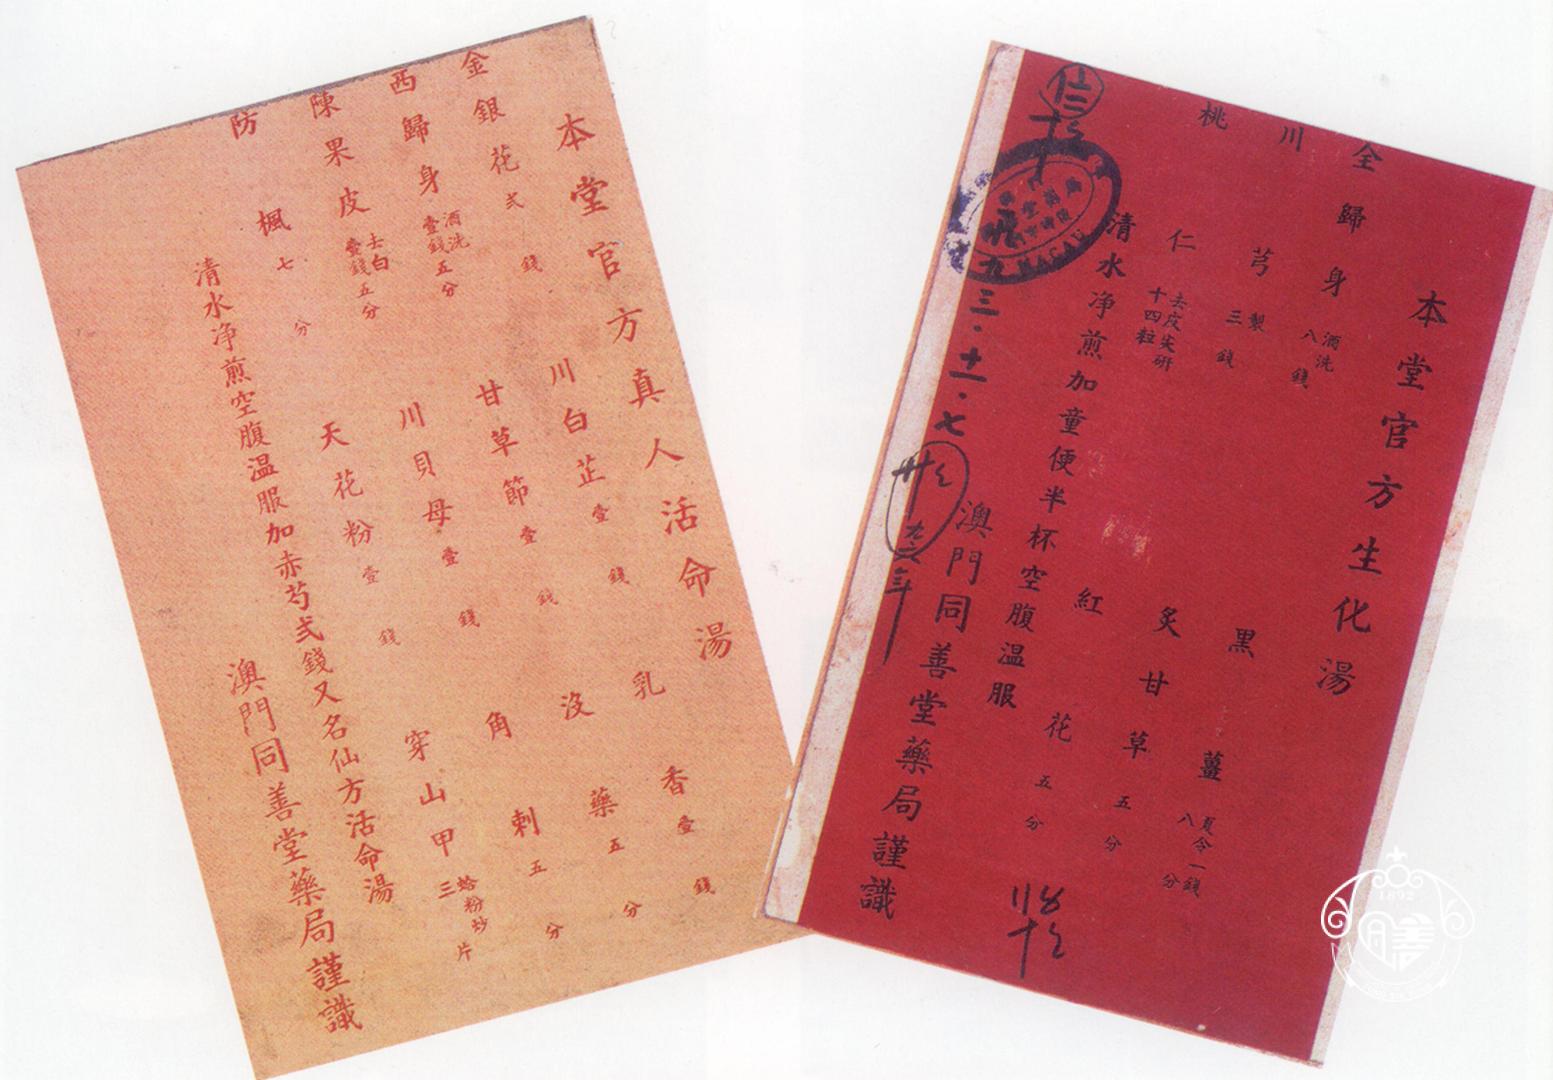 本堂官方真人活命湯
金銀花弍錢 川白芷壹錢 乳香壹錢
西歸身酒洗壹錢五分 甘草節壹錢 沒藥五分
陳果皮去白壹錢五分 川貝母壹錢 角刺五分
防楓七分 天花粉壹錢 穿山甲蛤粉炒三片
清水净煎空腹温服加赤芍弍錢又名仙方活命湯
澳門同善堂藥局謹識
本堂官方生化湯
全歸身酒洗八錢 黑薑夏令一錢八分
川芎製三錢 炙甘草五分
桃仁去皮尖研十四粒 紅花五分
清水净煎加童便半杯空腹温服
澳門同善堂藥局謹識
九三.十一.七
MACAU
1892